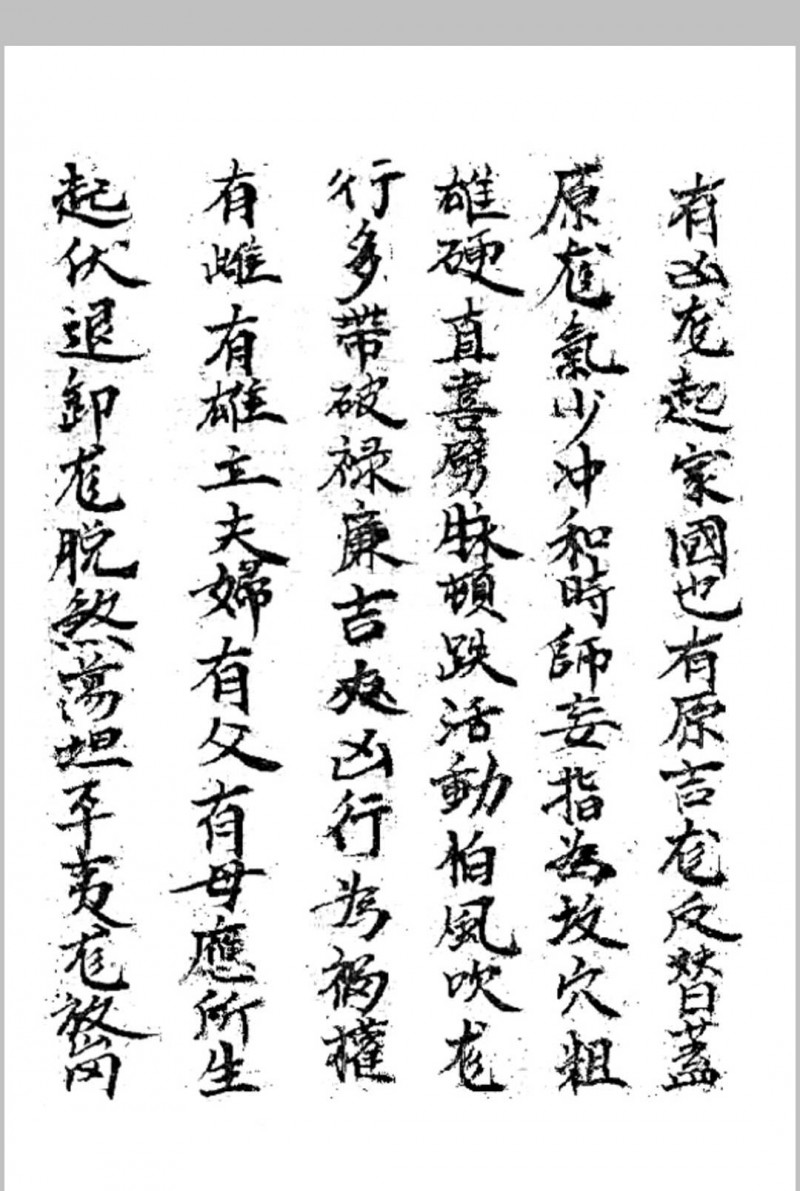 有凶龙起家國也有原吉龙反替蓋
原龙氣少冲和時師妄指為故穴粗
雄硬直喜劈脉頓跌活動怕風吹龙
行多帶破禄廉吉爽凶行為禍權
有雌有雄立夫婦有父有母應所生
起伏退卸龙脱煞蕩坦平夷龙放岗